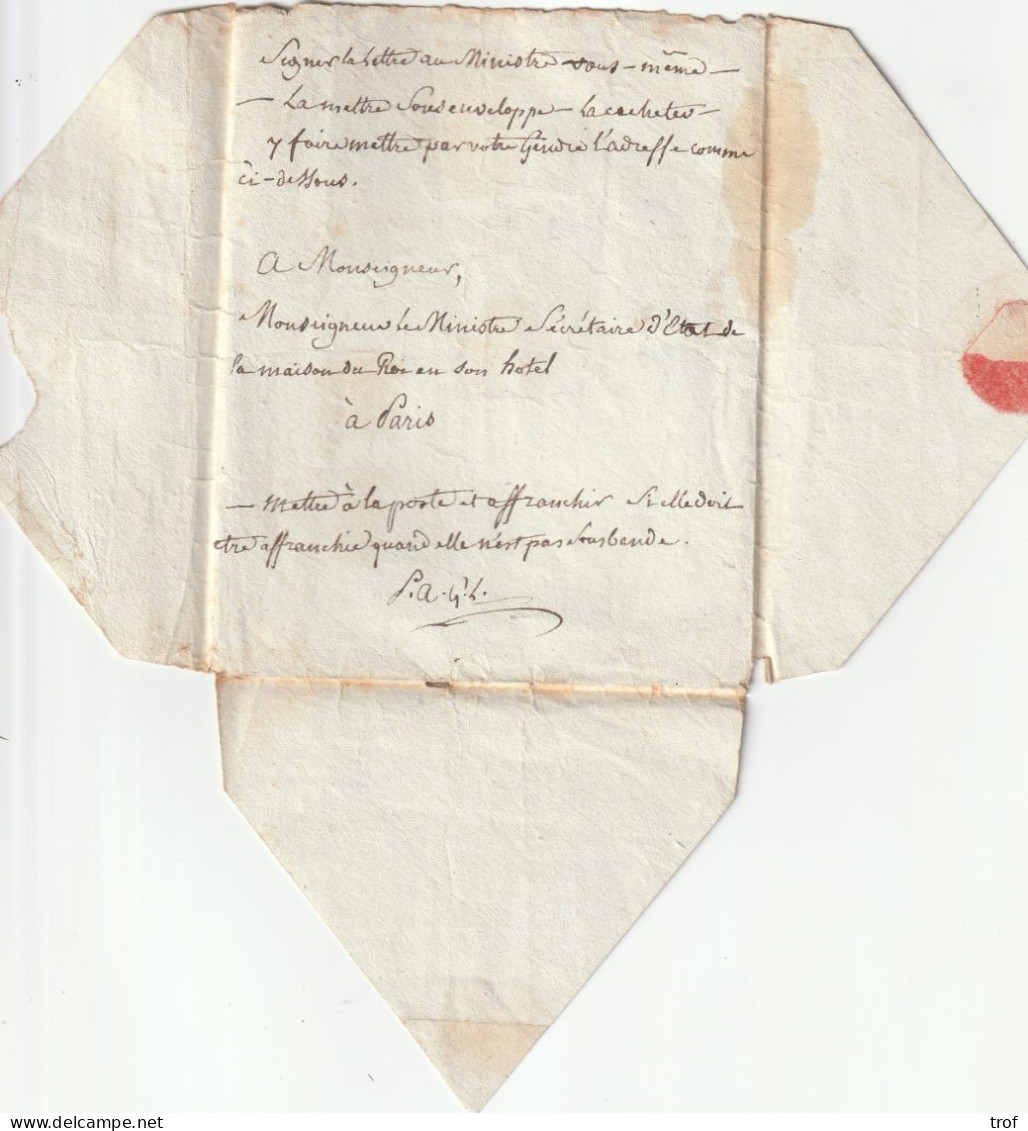 Signer la lettre au Ministre vous-même —
— La mettre sous enveloppe — la cacheter —
y faire mettre par votre Gendre l'adresse comme
ci-dessous.
A Monseigneur,
Monseigneur le Ministre Sécrétaire d'Etat de
la maison du Roi en son hotel
à Paris
— mettre à la poste et affranchir si elle doit
etre affranchie quand elle n'est pas sous bande.
delcampe.net
trof